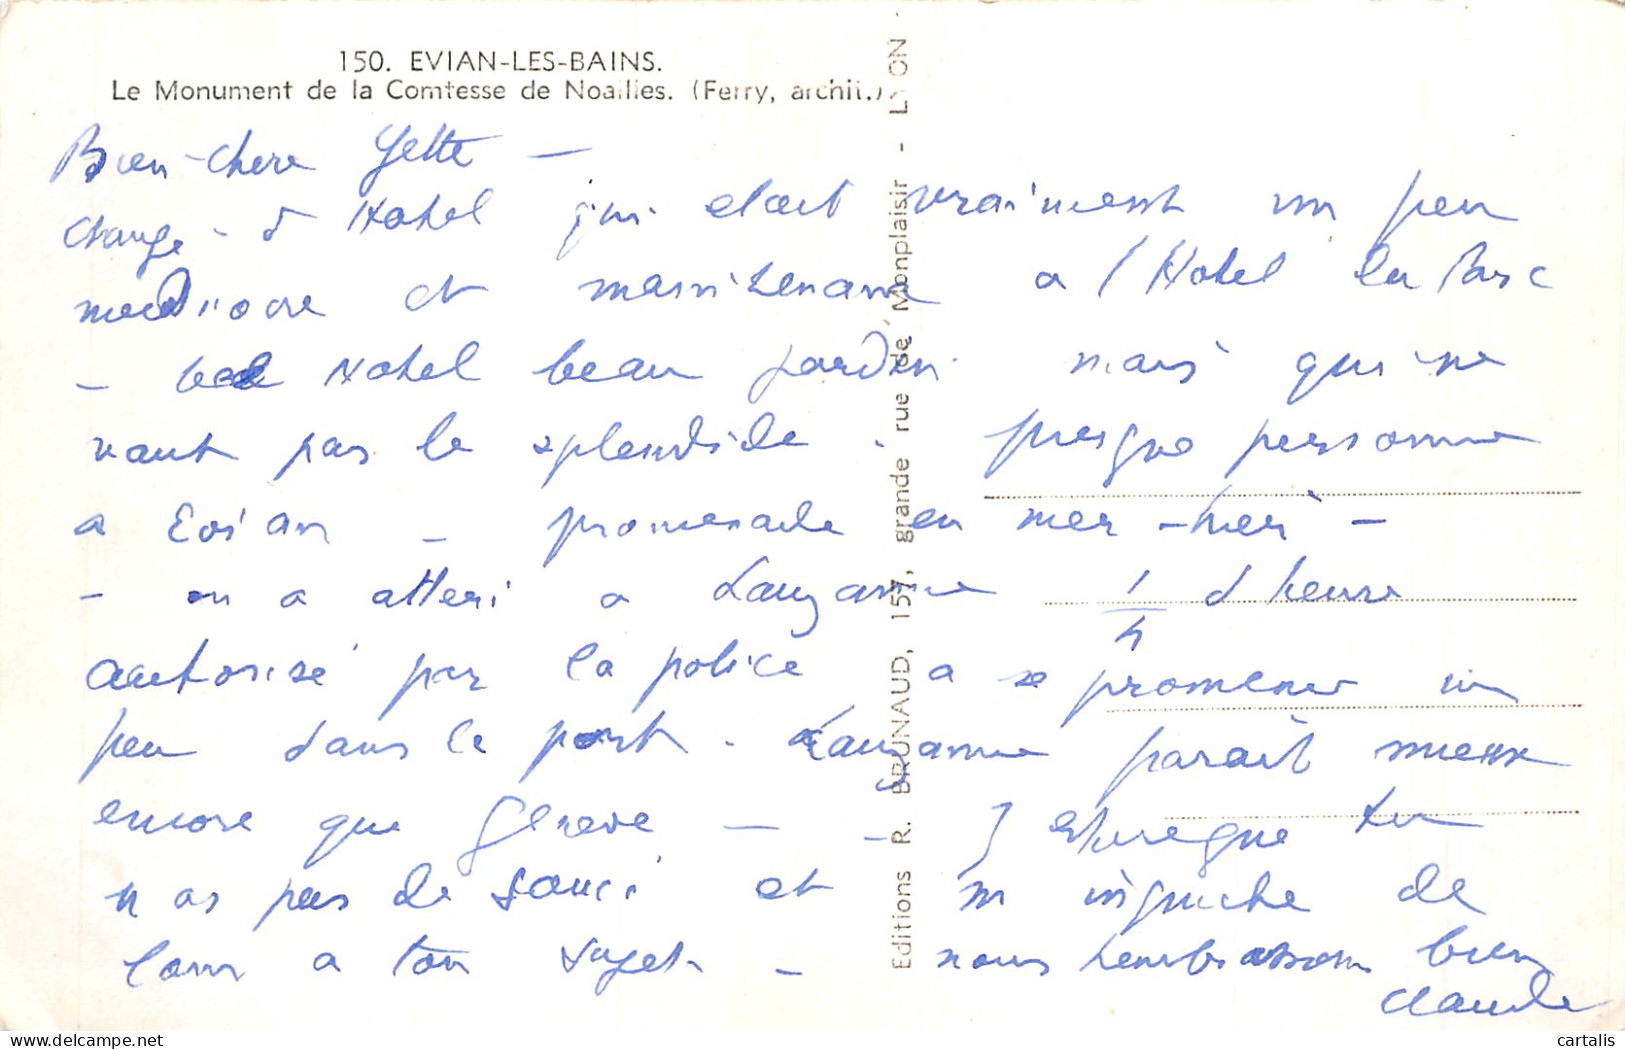 150. EVIAN-LES-BAINS.
Le Monument de la Comtesse de Noailles. (Ferry, archit.)
Editions R. BRUNAUD, 157, grande rue de Monplaisir - LYON
Bien-chere Yette -
change - d Hotel qui etait vraiment un peu
mediocre et maintenant a l Hotel du Parc
- bel Hotel beau jardin mais qui ne
vaut pas le splendide . presque personne
a Evian - promenade en mer - hier -
- on a atteri a Lauzanne 1/4 d heure
autorisé par la police a se promener un
peu dans le port . Lauzanne parait mieux
encore que Geneve - - J espere que tu
n as pas de souci et m inquiete de
loin a ton sujet - nous t embrassons bien
Claude
cartalis